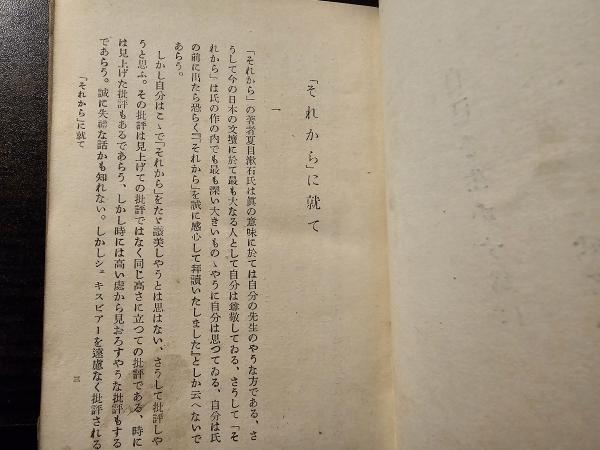 「それから」に就て
一
「それから」の著者夏目漱石氏は眞の意味に於ては自分の先生のやうな方である、さ
うして今の日本の文壇に於て最も大なる人として自分は尊敬してゐる、さうして「そ
れから」は氏の作の内でも最も深い大きいものゝやうに自分は思つてゐる、自分は氏
の前に出たら恐らく『「それから」を誠に感心して拜讀いたしました』としか云へないで
あらう。
しかし自分はこゝで「それから」をたゞ讃美しやうとは思はない、さうして批評しや
うと思ふ。その批評は見上げての批評ではなく同じ高さに立つての批評である、時に
は見上げた批評もあるであらう、しかし時には高い處から見おろすやうな批評もする
であらう。誠に失禮な話かも知れない。しかしシェキスピアーを遠慮なく批評される
「それから」に就て
三